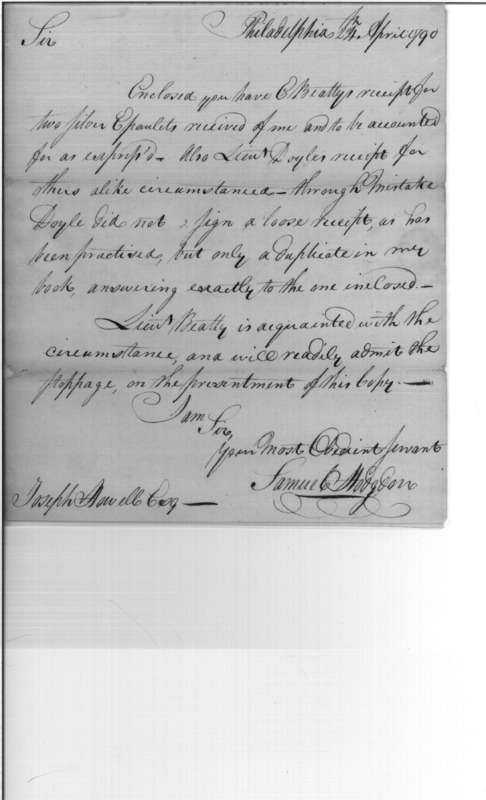 Philadelphia 24th April 1790
Sir
Enclosed you have E Beattys receipt for
two silver Epaulets received of me and to be accounted
for as express'd – Also Lieut Doyles receipt for
thers alike circumstanced – through Mistake
Doyle did not sign a loose receipt, as has
been practised, but only a duplicate in my
book, answering exactly to the one inclosed. –
Lieut Beatty is acquainted with the
circumstance, and will readily admit the
stoppage, on the presentment of this Copy. –
I am
Sir,
Your Most Obedient servant
Samuel Hodgdon
Joseph Howell Esq –